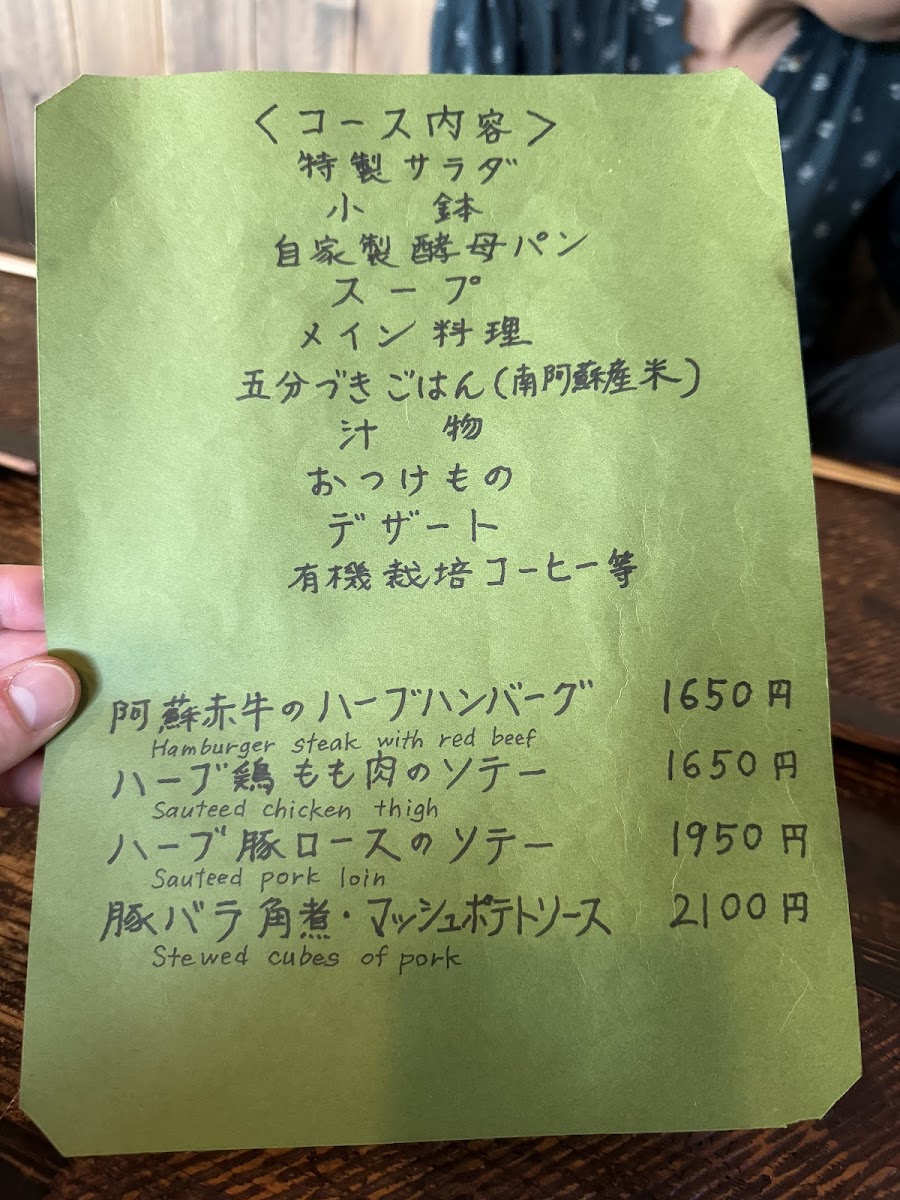 〈コース内容〉
特製サラダ
小 鉢
自家製酵母パン
スープ
メイン料理
五分づきごはん(南阿蘇産米)
汁 物
おつけもの
デザート
有機栽培コーヒー等
阿蘇赤牛のハーブハンバーグ 1650円
Hamburger steak with red beef
ハーブ鶏もも肉のソテー 1650円
Sauteed chicken thigh
ハーブ豚ロースのソテー 1950円
Sauteed pork loin
豚バラ角煮・マッシュポテトソース 2100円
Stewed cubes of pork